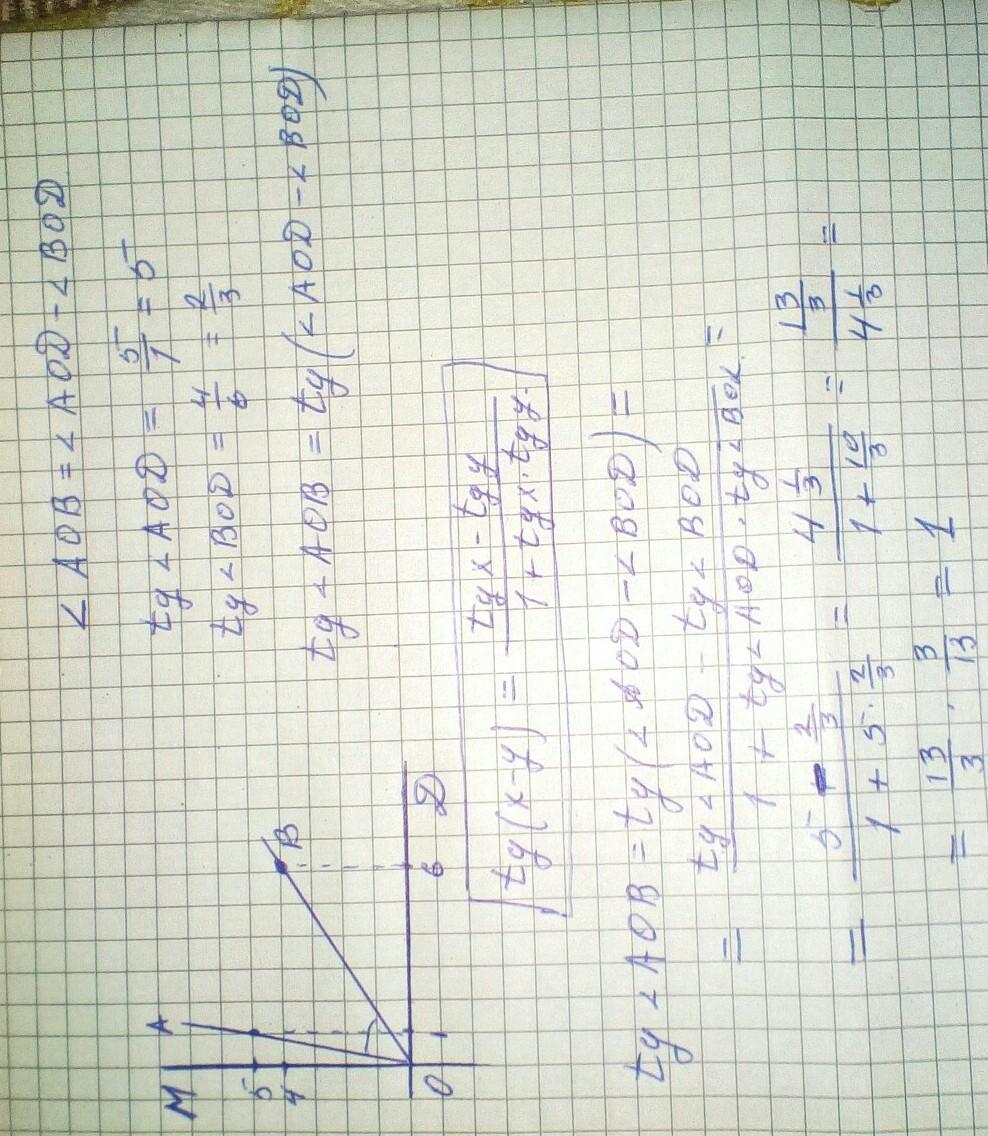 ∠AOB = ∠AOD - ∠BOD
tg∠AOD = 5/1 = 5
tg∠BOD = 4/6 = 2/3
tg∠AOB = tg(∠AOD - ∠BOD)
M
A
B
5
4
O
1
6
D
tg(x-y) = (tgx - tgy)/(1 + tgx·tgy)
tg∠AOB = tg(∠AOD - ∠BOD) =
= (tg∠AOD - tg∠BOD)/(1 + tg∠AOD·tg∠BOK) =
= (5 - 2/3)/(1 + 5·2/3) = (4 1/3)/(1 + 10/3) = (13/3)/(4 1/3) =
= 13/3 · 3/13 = 1